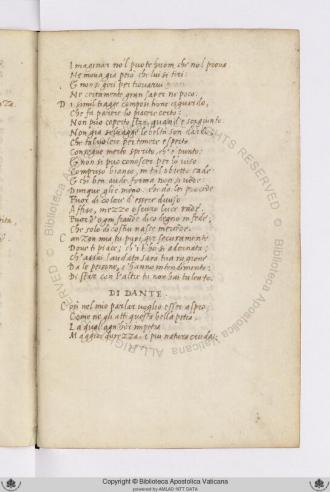 Imaginar nol puote huom, che nol prova
Me mova gia però che lui si tiri:
G non si giri per trovarui
Ne certamente gran saper ne poco.
D i simil tragge complessione sguardo,
Che fa parere lo piacere certo:
Non può coperto star, quand'è sì giunto.
Non già selvagge le beltà son dardi,
Che tal voler per temere è sperto
Consegue merto spirito, ch'è punto:
G non si può conoscer per lo uiso
Compriso bianco, in tal obietto cade
G chi ben aude forma non si vede:
Dunque che meno, che da lei procede
Fuor di colore d'essere diuiso
Assiso, mezzo oscuro luce rade.
Fuor d'ogni fraude dico degno in fede,
Che solo di costui nasce mercede.
C anzon mia tu puoi gir securamente
Doue ti piace; ch'i t'ho sì adornata;
Ch'assai laudata sarà tua ragione
Da le persone, c'hanno intendimento:
Di star con l'altre tu non hai talento.
DI DANTE.
C osi nel mio parlar uoglio esser aspro;
Come ne gli atti questa bella petra.
La qual ogn'hor impetra
Maggior durezza, e più natura cruda:
© Biblioteca Apostolica Vaticana
ALL RIGHTS RESERVED
Copyright © Biblioteca Apostolica Vaticana
powered by AMLAD NTT DATA